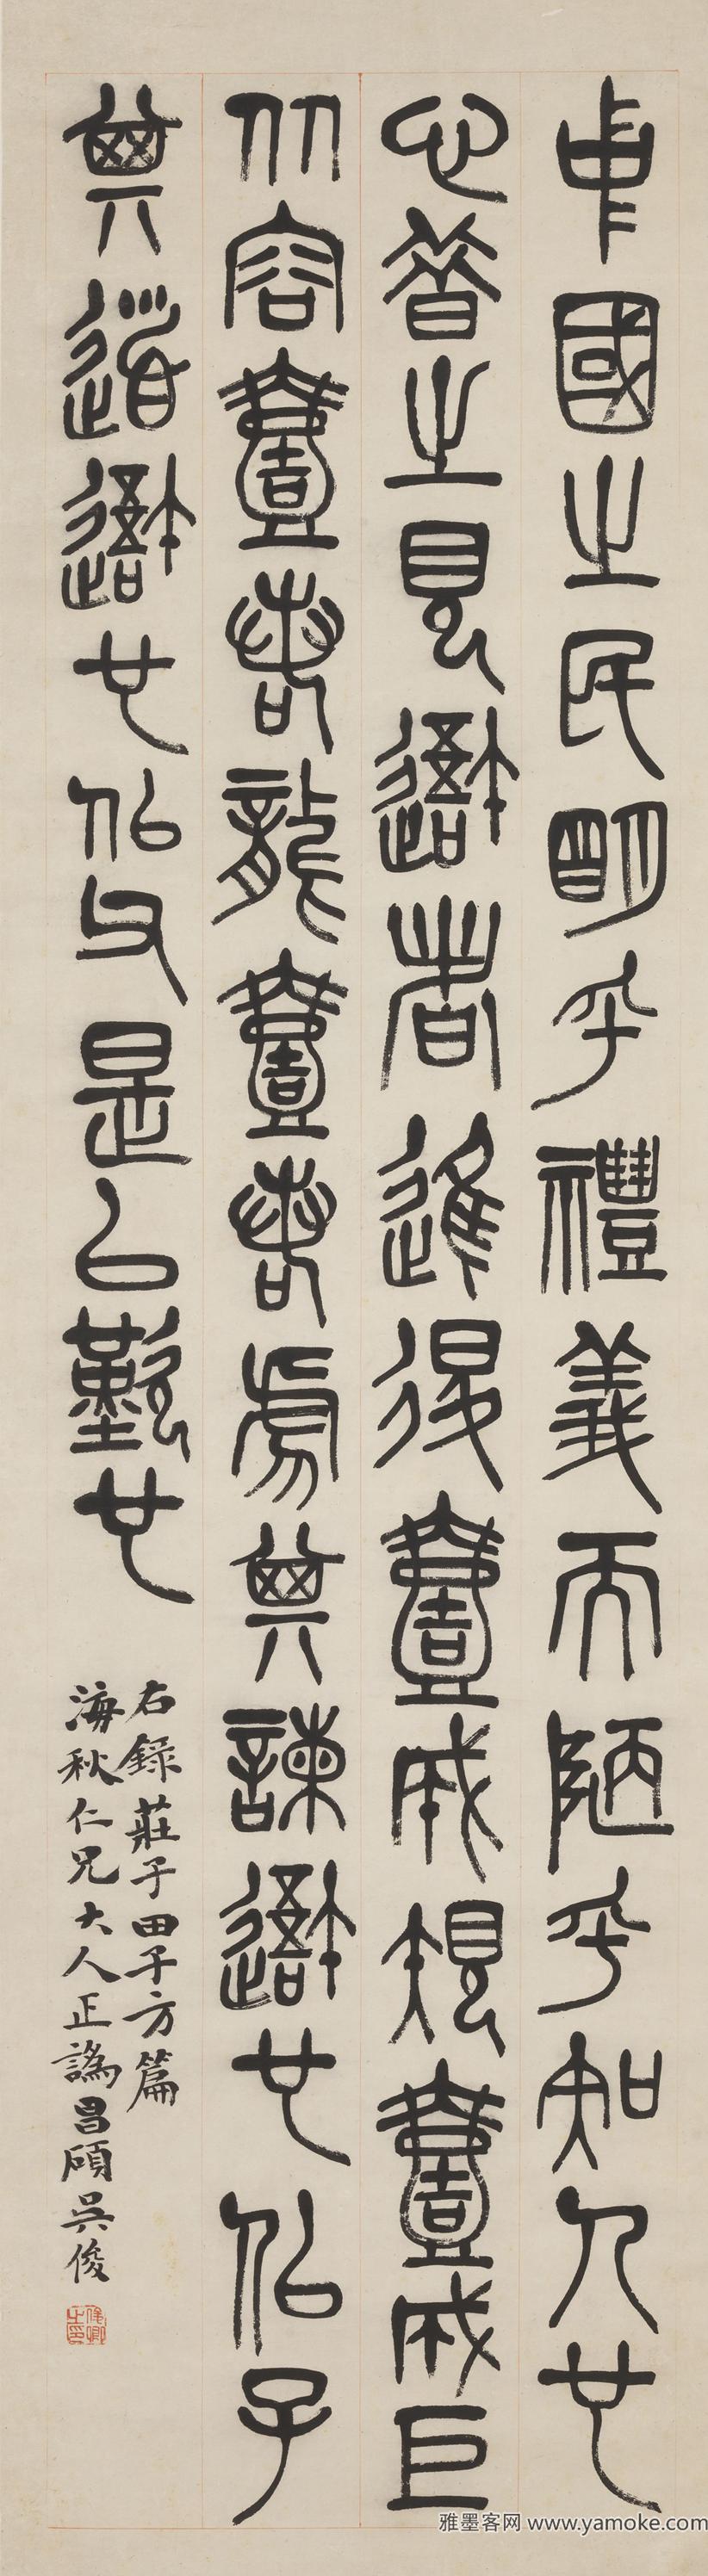 中國之民明乎禮義而陋乎知人也
心昔之見吾者進退壹成規壹成巨
从容壹若龍壹若虎其諫吾也佀子
其道吾也佀父是以歎也
右錄莊子田子方篇
海秋仁兄大人正譌昌碩吳俊
俊卿之印
雅墨客网 www.yamoke.com